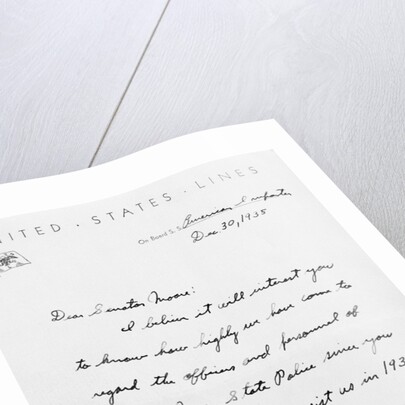 UNITED · STATES · LINES
On Board S.S. American Importer
Dec. 30, 1935
Dear Senator Moore:
I believe it will interest you
to know how highly we have come to
regard the officers and personnel of
State Police since you
us in 193